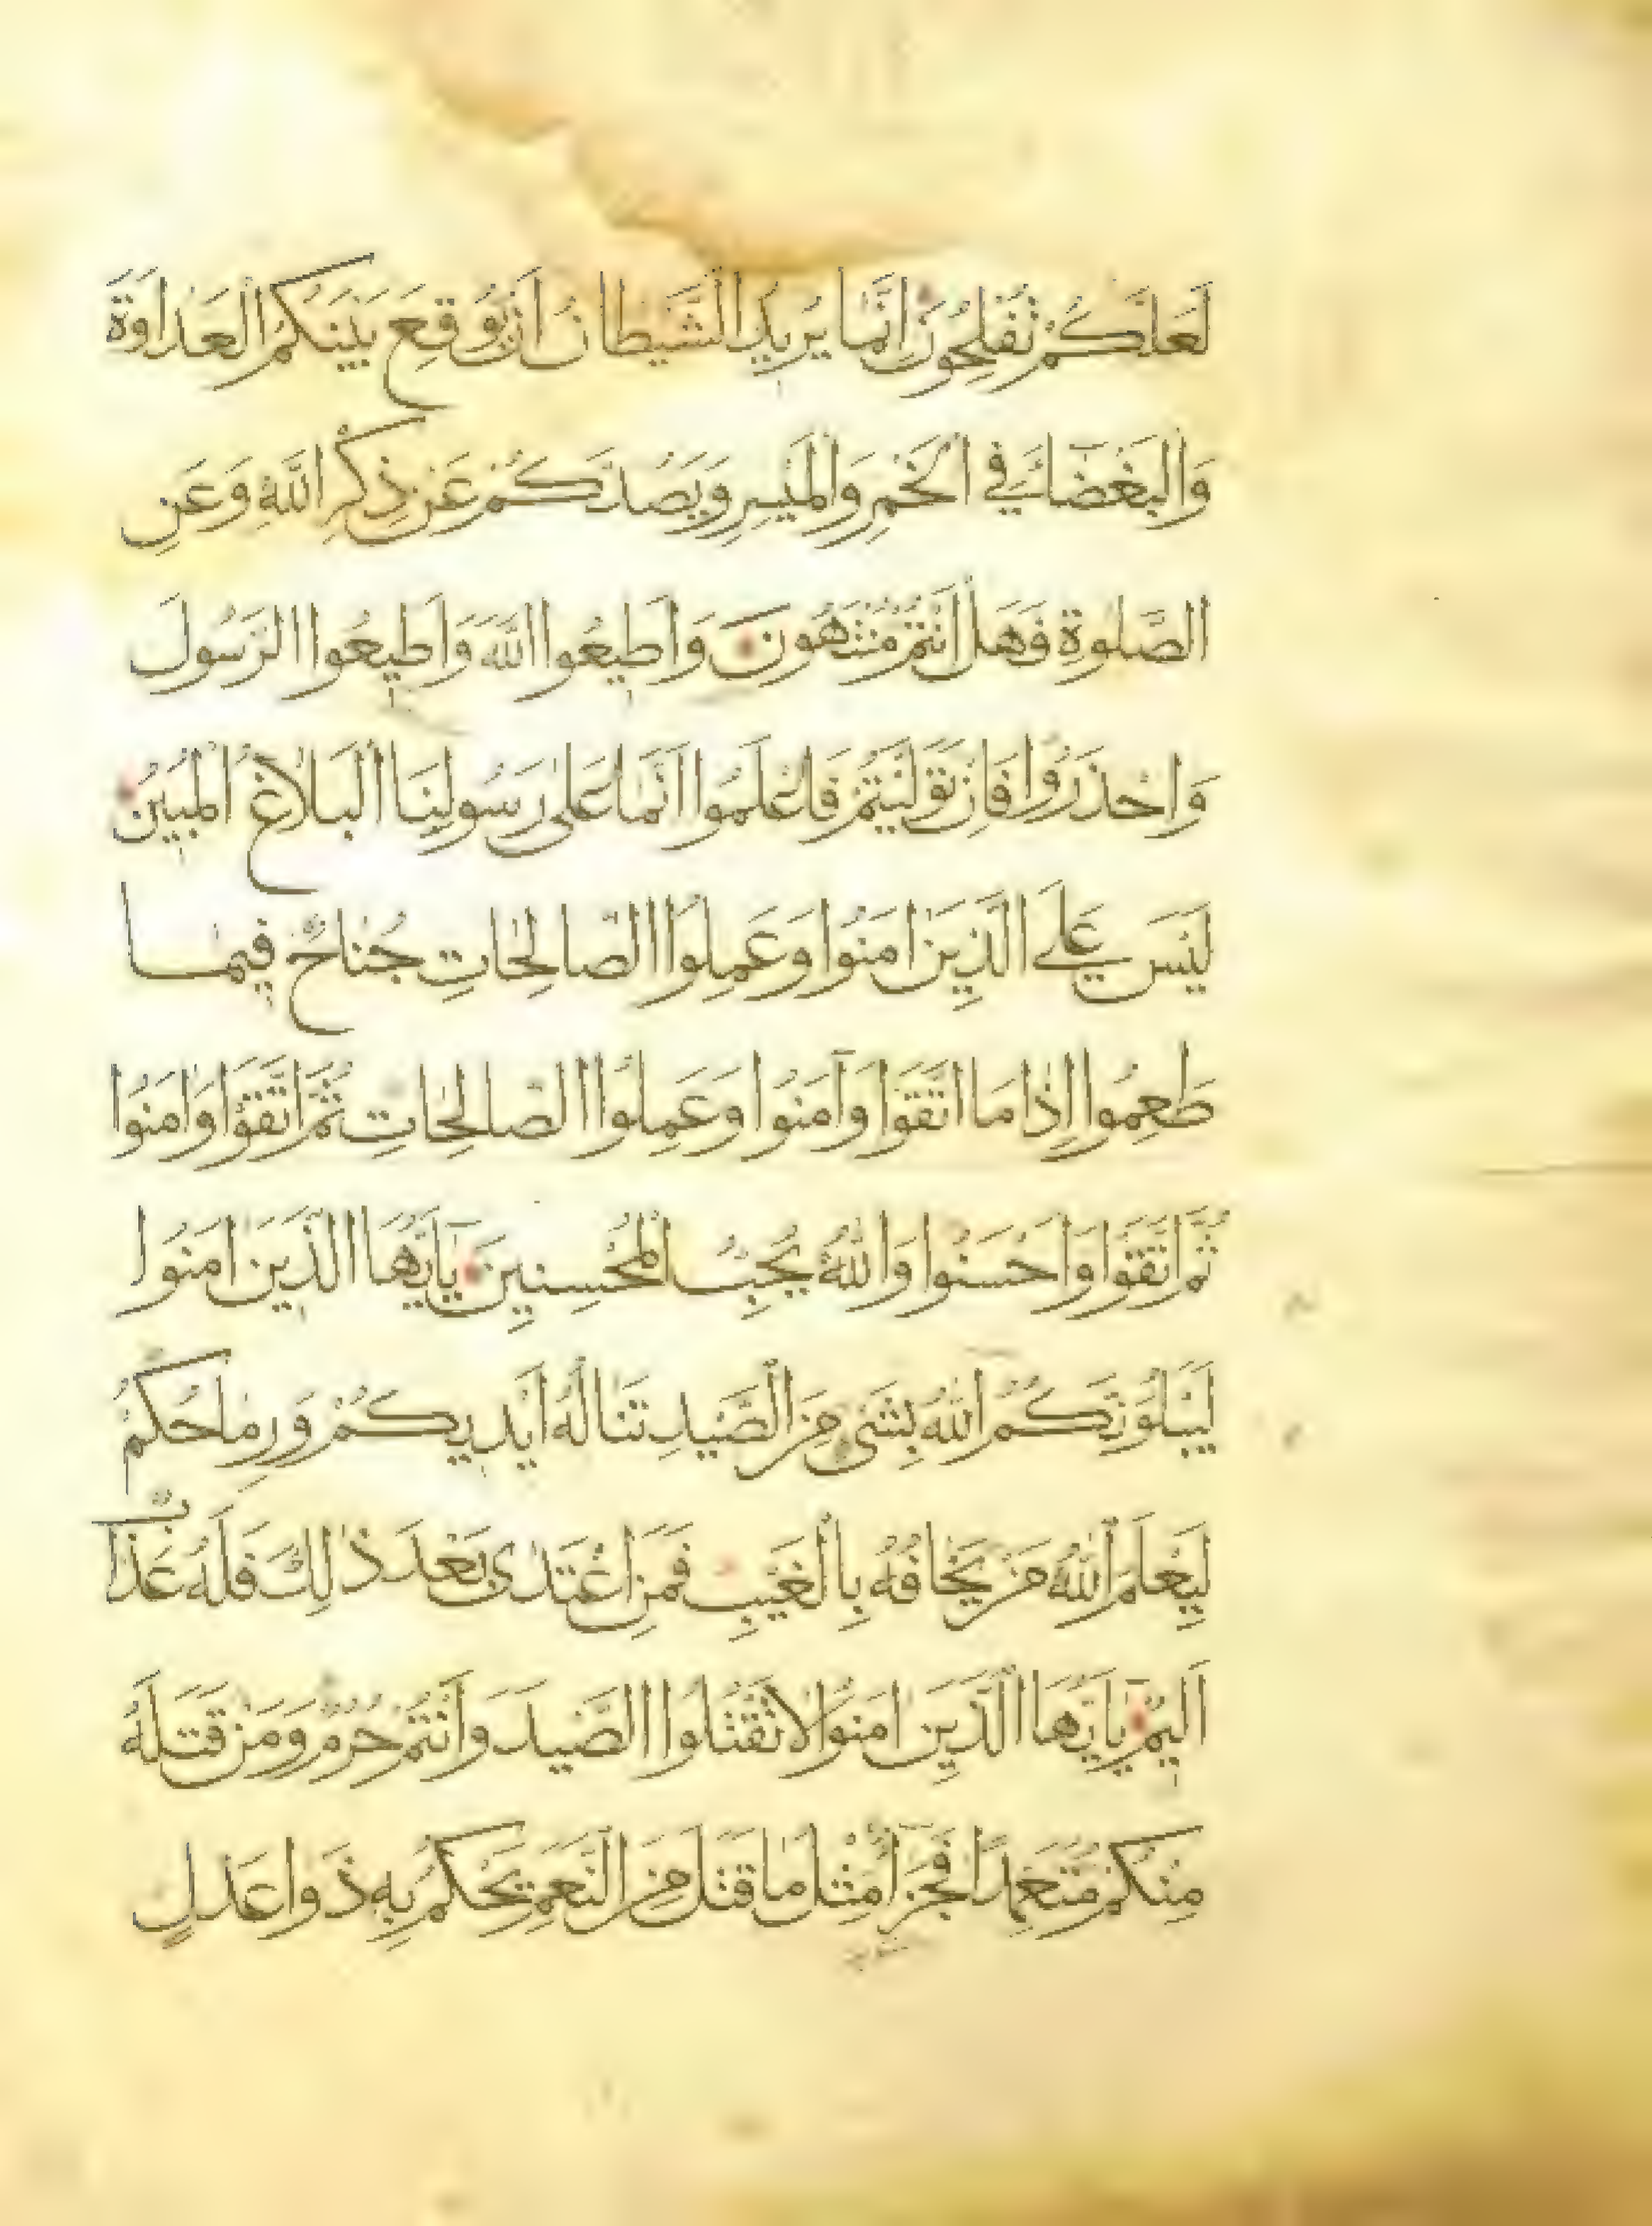 لَعَلَّكُمْ تُفْلِحُونَ إِنَّمَا يُرِيدُ الشَّيْطَانُ اَنْ يُوقِعَ بَيْنَكُمُ الْعَدَاوَةَ
وَالْبَغْضَاءَ فِي الْخَمْرِ وَالْمَيْسِرِ وَيَصُدَّكُمْ عَنْ ذِكْرِ اللَّهِ وَعَنِ
الصَّلوةِ فَهَلْ اَنْتُمْ مُنْتَهُونَ وَاَطِيعُوا اللَّهَ وَاَطِيعُوا الرَّسُولَ
وَاحْذَرُوا فَاِنْ تَوَلَّيْتُمْ فَاعْلَمُوا اَنَّمَا عَلَى رَسُولِنَا الْبَلَاغُ الْمُبِينُ
لَيْسَ عَلَى الَّذِينَ امَنُوا وَعَمِلُوا الصَّالِحَاتِ جُنَاحٌ فِيمَا
طَعِمُوا اِذَا مَا اتَّقَوْا وَآمَنُوا وَعَمِلُوا الصَّالِحَاتِ ثُمَّ اتَّقَوْا وَامَنُوا
ثُمَّ اتَّقَوْا وَاَحْسَنُوا وَاللَّهُ يُحِبُّ الْمُحْسِنِينَ يَا اَيُّهَا الَّذِينَ امَنُوا
لَيَبْلُوَنَّكُمُ اللَّهُ بِشَيْءٍ مِنَ الصَّيْدِ تَنَالُهُ اَيْدِيكُمْ وَرِمَاحُكُمْ
لِيَعْلَمَ اللَّهُ مَنْ يَخَافُهُ بِالْغَيْبِ فَمَنِ اعْتَدَى بَعْدَ ذلِكَ فَلَهُ عَذَابٌ
اَلِيمٌ يَا اَيُّهَا الَّذِينَ امَنُوا لَا تَقْتُلُوا الصَّيْدَ وَاَنْتُمْ حُرُمٌ وَمَنْ قَتَلَهُ
مِنْكُمْ مُتَعَمِّدًا فَجَزَاءٌ مِثْلُ مَا قَتَلَ مِنَ النَّعَمِ يَحْكُمُ بِهِ ذَوَا عَدْلٍ